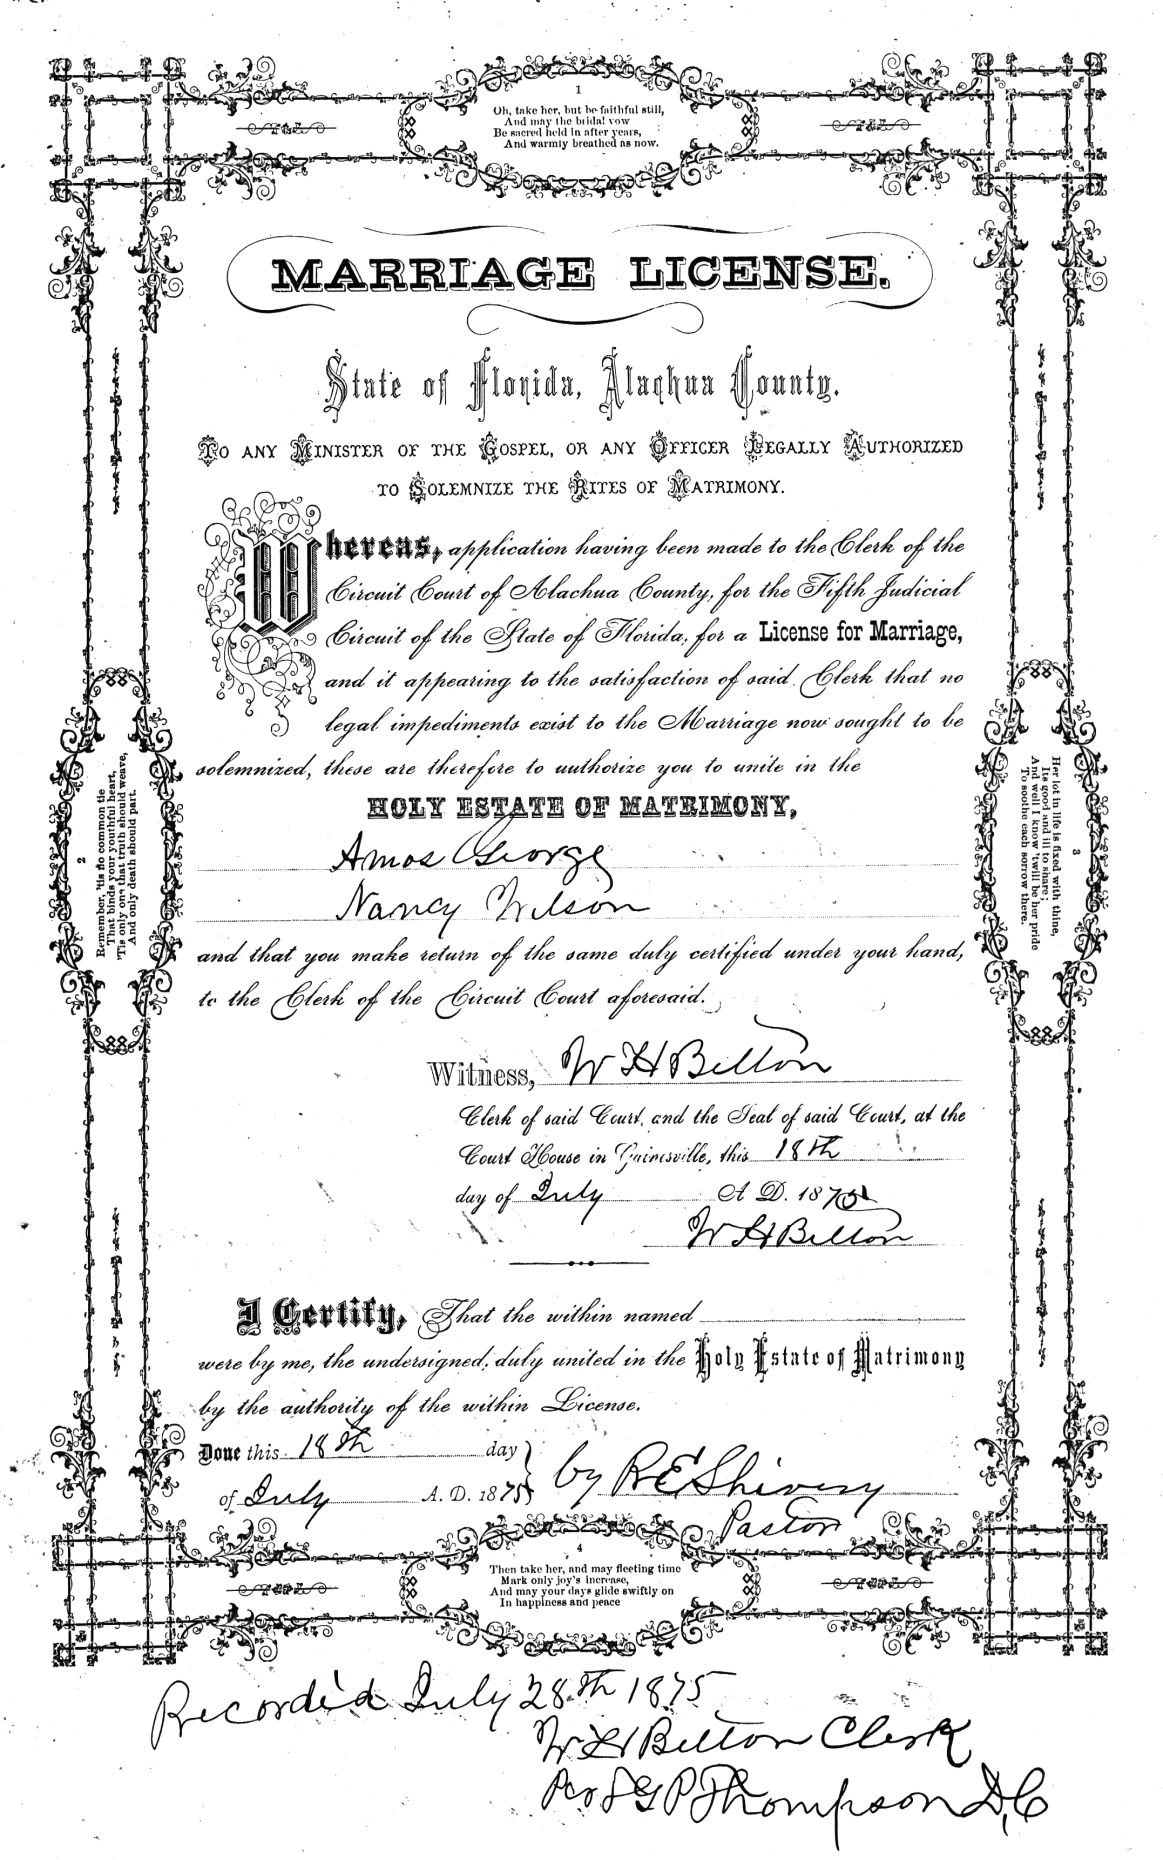 1
Oh, take her, but be faithful still,
And may the bridal vow
Be sacred held in after years,
And warmly breathed as now.
MARRIAGE LICENSE.
State of Florida, Alachua County.
TO ANY MINISTER OF THE GOSPEL, OR ANY OFFICER LEGALLY AUTHORIZED
TO SOLEMNIZE THE RITES OF MATRIMONY.
Whereas, application having been made to the Clerk of the
Circuit Court of Alachua County, for the Fifth Judicial
Circuit of the State of Florida, for a License for Marriage,
and it appearing to the satisfaction of said Clerk that no
legal impediments exist to the Marriage now sought to be
solemnized, these are therefore to authorize you to unite in the
HOLY ESTATE OF MATRIMONY,
Amos George
Nancy Wilson
and that you make return of the same duly certified under your hand,
to the Clerk of the Circuit Court aforesaid.
Witness, W H Belton
Clerk of said Court, and the Seal of said Court, at the
Court House in Gainesville, this 18th
day of July A D. 1875
W H Belton
I Certify, That the within named
were by me, the undersigned, duly united in the Holy Estate of Matrimony
by the authority of the within License.
Done this 18th day
of July A. D. 1875
by R E Shivery
Pastor
2
Remember, 'tis no common tie
That binds your youthful heart,
'Tis only one that truth should weave,
And only death should part.
3
Her lot in life is fixed with thine,
Its good and ill to share;
And well I know 'twill be her pride
To soothe each sorrow there.
4
Then take her, and may fleeting time
Mark only joy's increase,
And may your days glide swiftly on
In happiness and peace
Recorded July 28th 1875
W H Belton Clerk
Thompson D,C